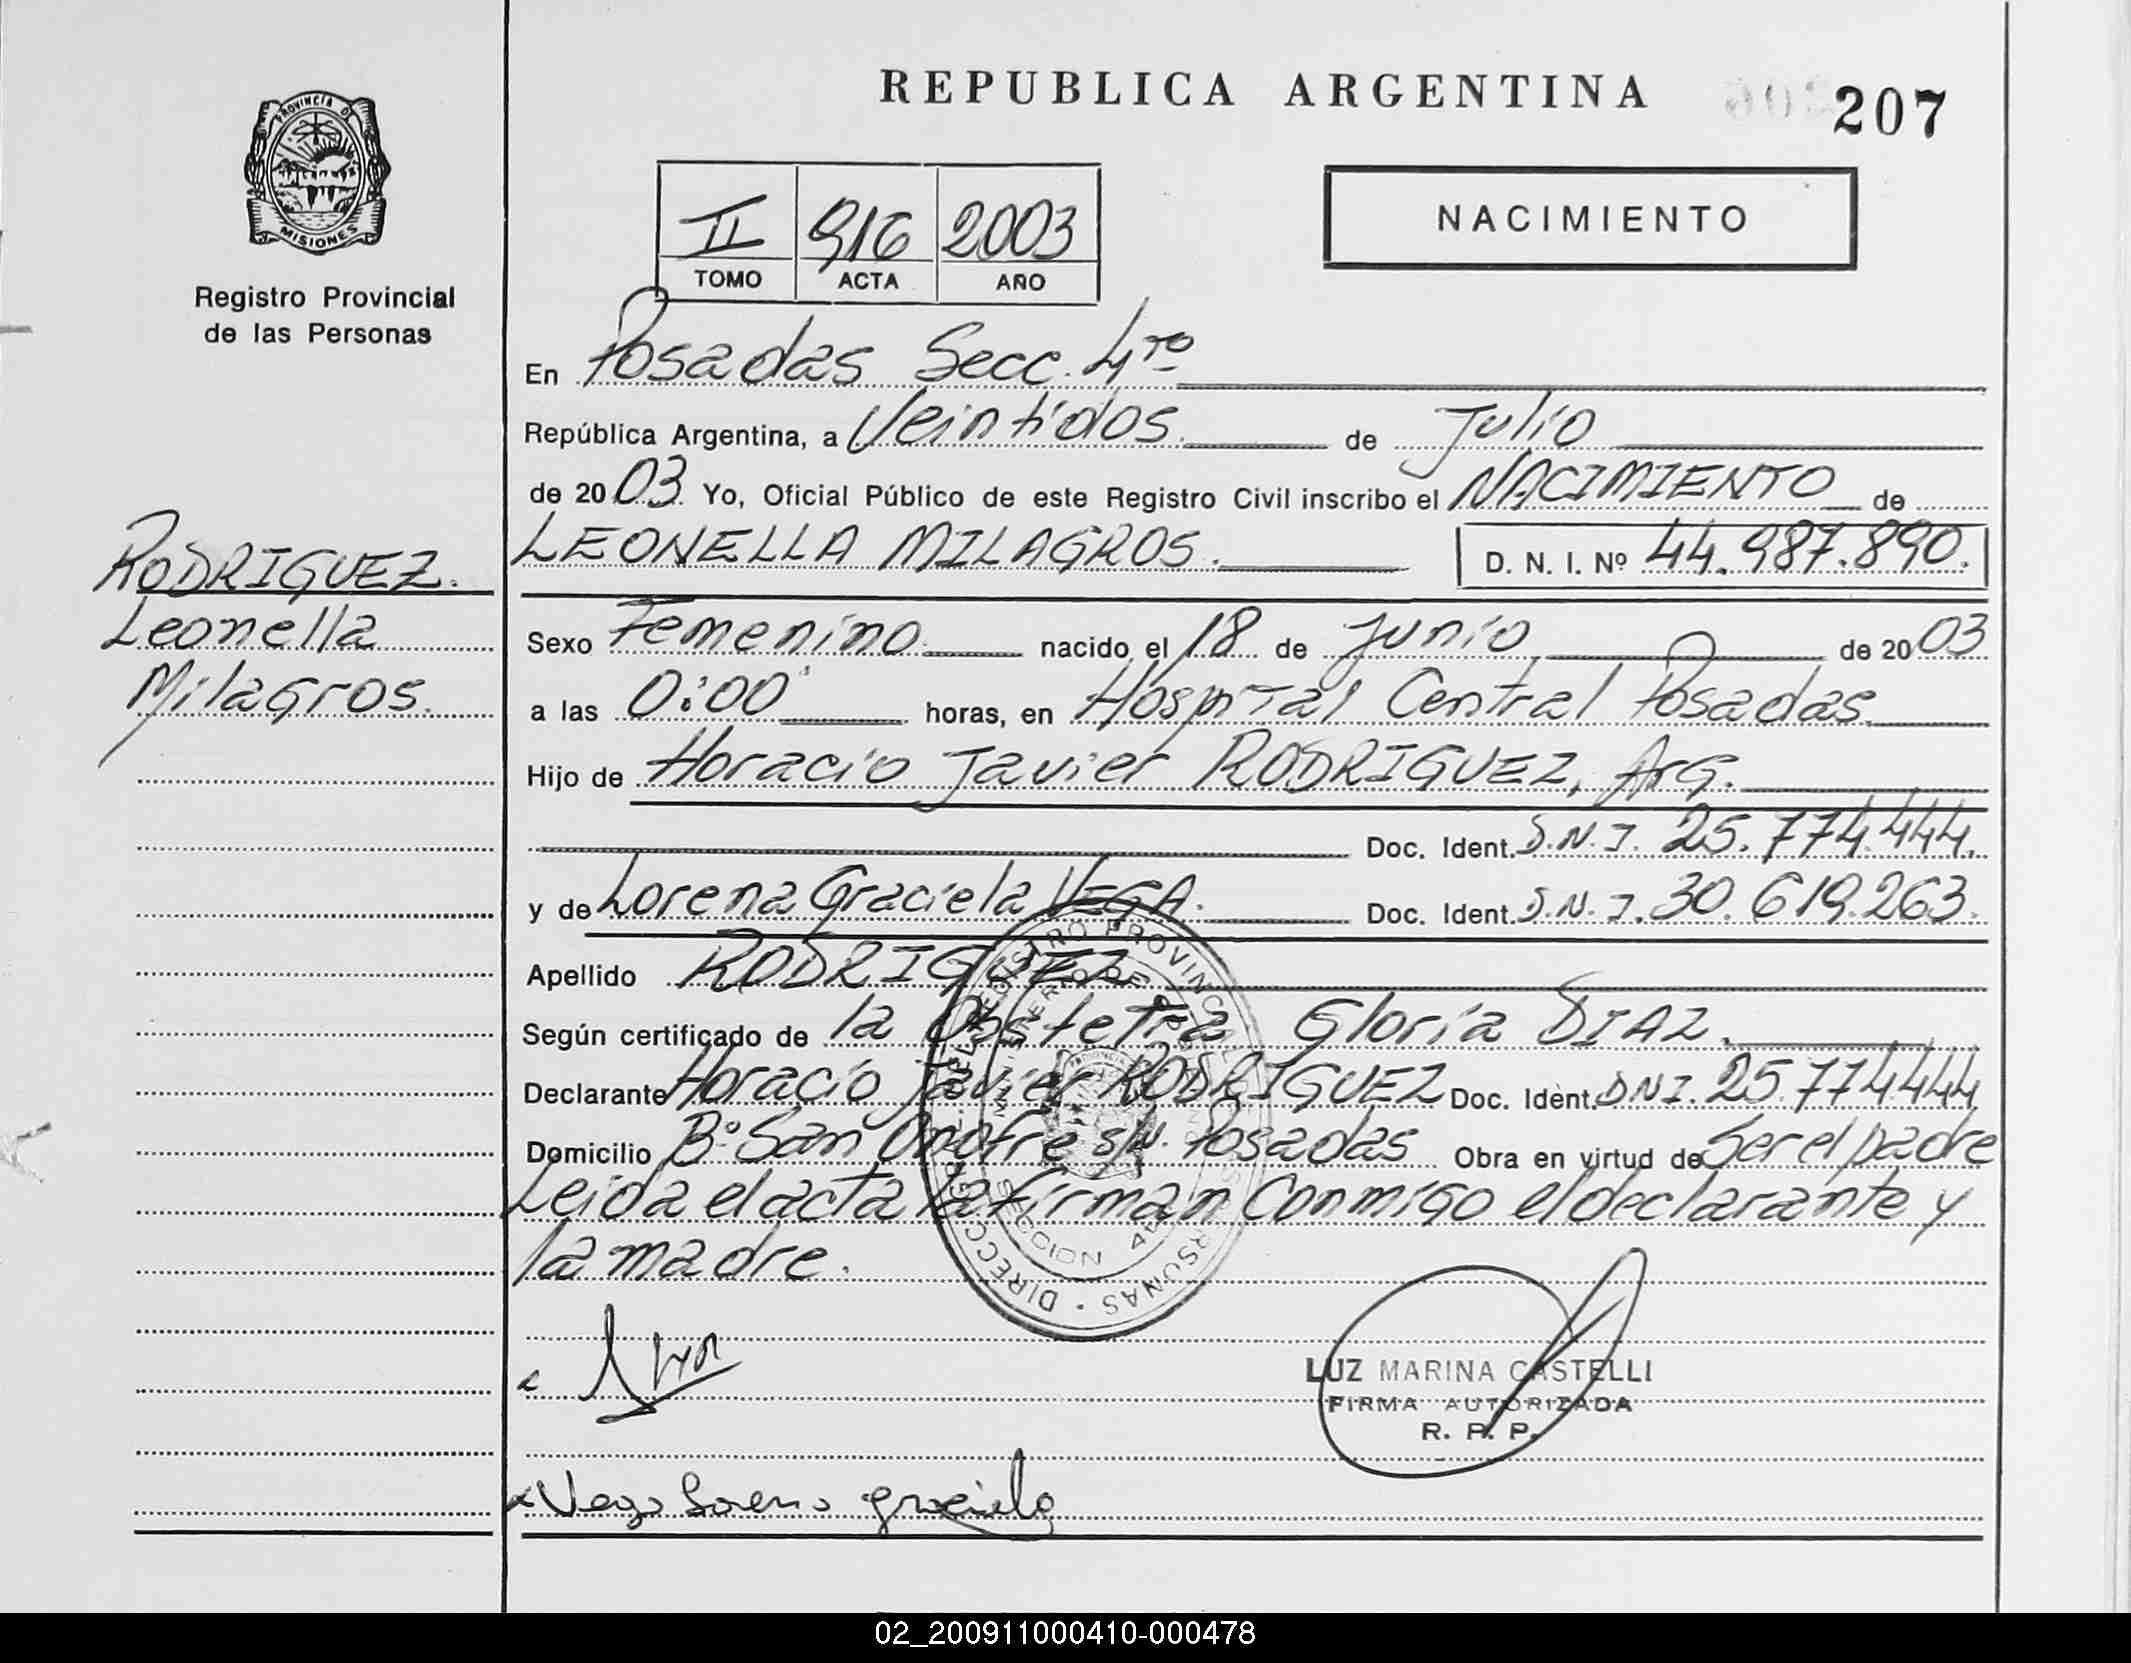 REPUBLICA ARGENTINA
207
PROVINCIA DE
MISIONES
Registro Provincial
de las Personas
II 916 2003
TOMO ACTA AÑO
NACIMIENTO
En Posadas Secc. 4ta
República Argentina, a Veintidos de Julio
de 2003. Yo, Oficial Público de este Registro Civil inscribo el NACIMIENTO de
RODRIGUEZ.
Leonella
Milagros.
LEONELLA MILAGROS. D. N. I. Nº 44.987.890.
Sexo Femenino nacido el 18 de Junio de 2003
a las 0:00 horas, en Hospital Central Posadas.
Hijo de Horacio Javier RODRIGUEZ, Arg.
Doc. Ident. D.N.I. 25.774.444.
y de Lorena Graciela VEGA. Doc. Ident. D.N.I. 30.619.263.
Apellido RODRIGUEZ
Según certificado de la Obstetra Gloria DIAZ.
Declarante Horacio Javier RODRIGUEZ Doc. Ident. DNI. 25.774444
Domicilio Bº San Onofre s/n. Posadas Obra en virtud de Ser el padre
Leida el acta la firman conmigo el declarante y
la madre.
REGISTRO PROVINCIAL
PERSONAS
SECCION 4ta
LUZ MARINA CASTELLI
FIRMA AUTORIZADA
R. P. P.
Vega Lorena graciela
02_200911000410-000478